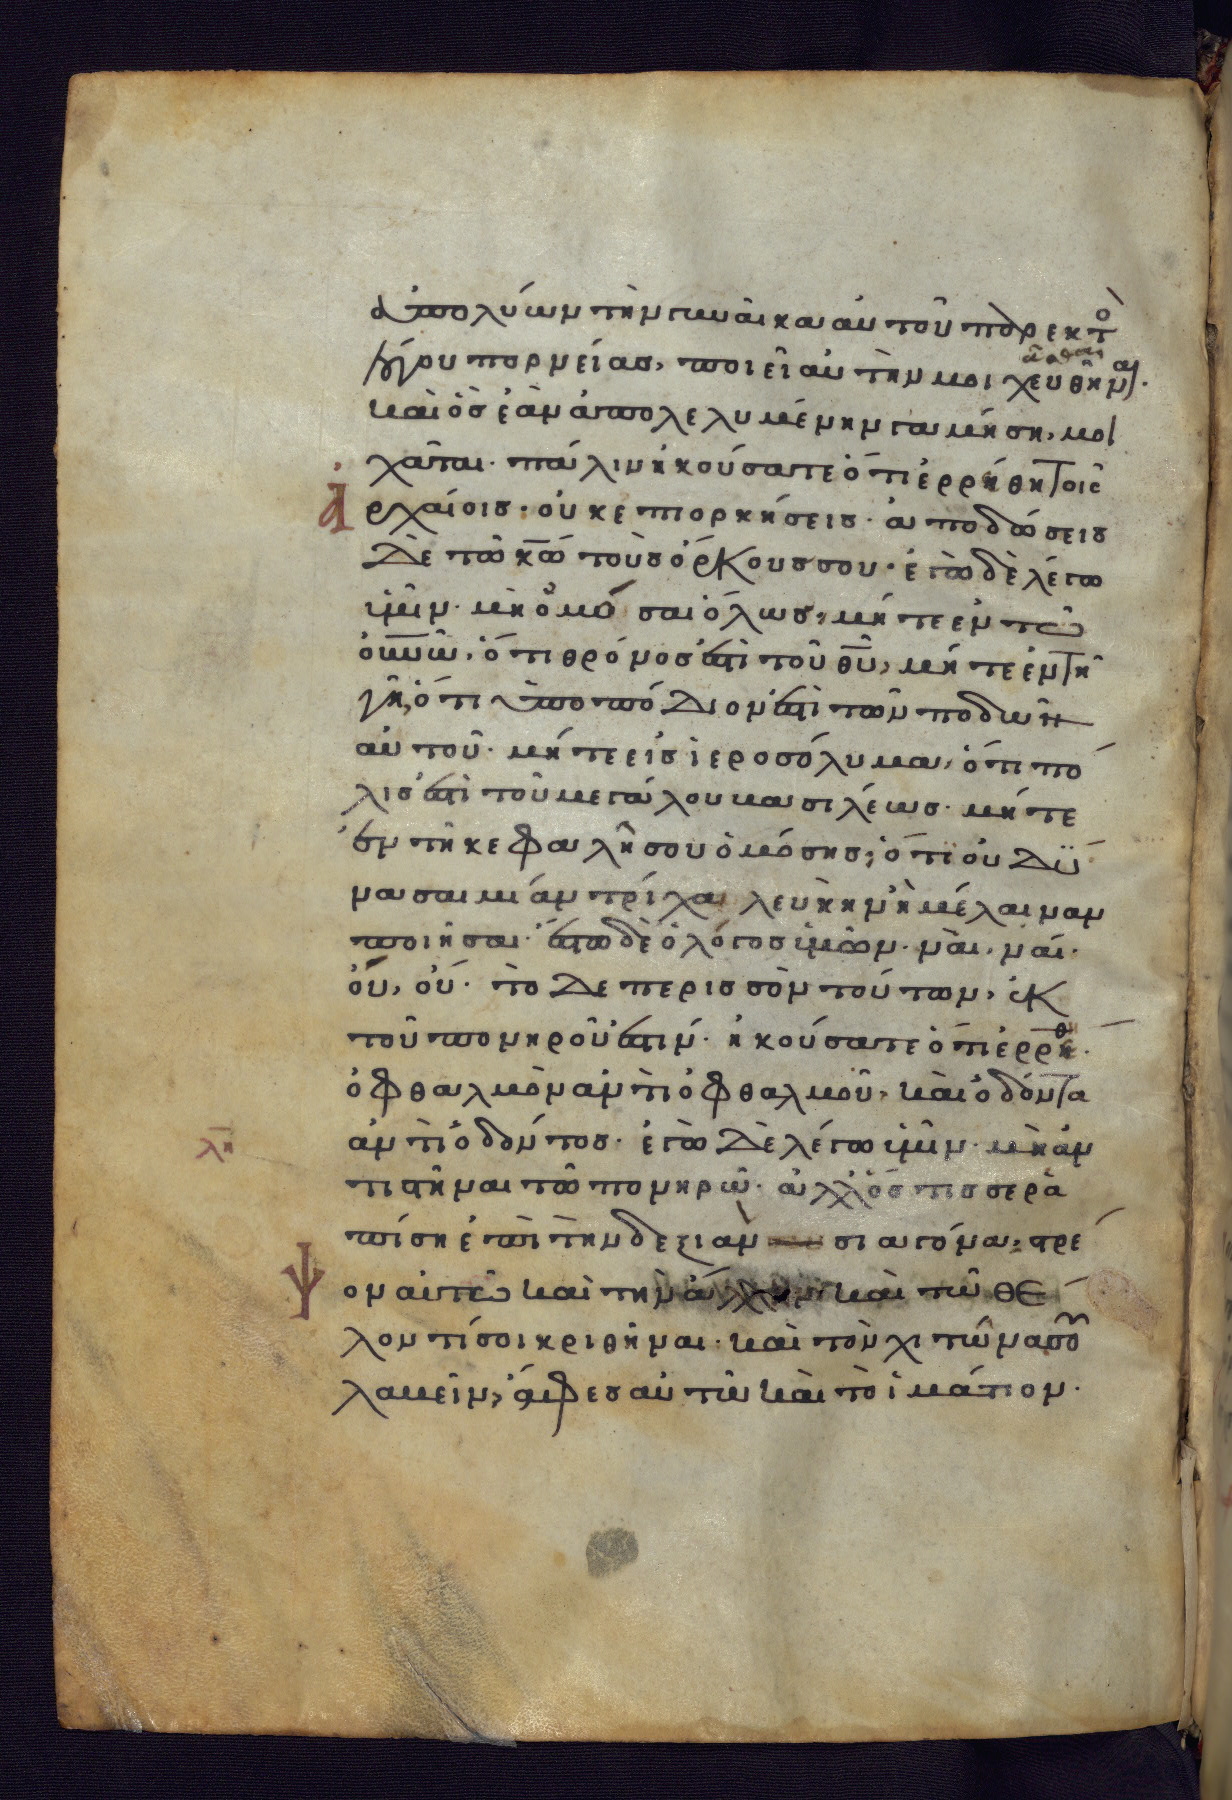 ἀπολύων τὴν γυναῖκα αὐτοῦ παρεκτὸ
λόγου πορνείας, ποιεῖ αὐτὴν μοιχευθῆναι·
καὶ ὃς ἐὰν ἀπολελυμένην γαμήση, μοι
χᾶται· πάλιν ἠκούσατε ὅτι ἐρρήθη τοῖς
ἀρχαίοις· οὐκ ἐπιορκήσεις· ἀποδώσεις
δὲ τῶ κ̅ω̅ τοὺς ὅρκους σου· ἐγὼ δὲ λέγω
ὑμῖν· μὴ ὀμόσαι ὅλως, μήτε ἐν τῶ
οὐν̅ω̅, ὅτι θρόνος ἐστὶ τοῦ θ̅υ̅, μήτε ἐν τῆ
γῆ, ὅτι ὑποπόδιον ἐστὶ τῶν ποδῶν
αὐτοῦ· μήτε εἰς ἱεροσόλυμα, ὅτι πό
λις ἐστὶ τοῦ μεγάλου βασιλέως· μήτε
ἐν τῆ κεφαλῆ σου ὀμόσης, ὅτι οὐ δύ
νασαι μίαν τρίχα λευκὴν ἢ μέλαιναν
ποιῆσαι· ἔστω δὲ ὁ λόγος ὑμῶν· ναὶ, ναί·
οὔ, οὔ· τὸ δὲ περισσὸν τούτων, ἐκ
τοῦ πονηροῦ ἐστιν· ἠκούσατε ὅτι ἐρρήθη·
ὀφθαλμὸν ἀντὶ ὀφθαλμοῦ, καὶ ὀδόντα
ἀντὶ ὀδόντος· ἐγὼ δὲ λέγω ὑμῖν· μὴ ἀν
λη
τιστῆναι τῶ πονηρῶ· ἀλλ' ὅστις σε ρα
πίση ἐπὶ τὴν δεξιὰν σιαγόνα, στρέ
ψον αὐτῶ καὶ τὴν ἄλλην· καὶ τῶ θέ
λοντί σοι κριθῆναι· καὶ τὸν χιτῶνα σου
λαβεῖν, ἄφες αὐτῶ καὶ τὸ ἱμάτιον·